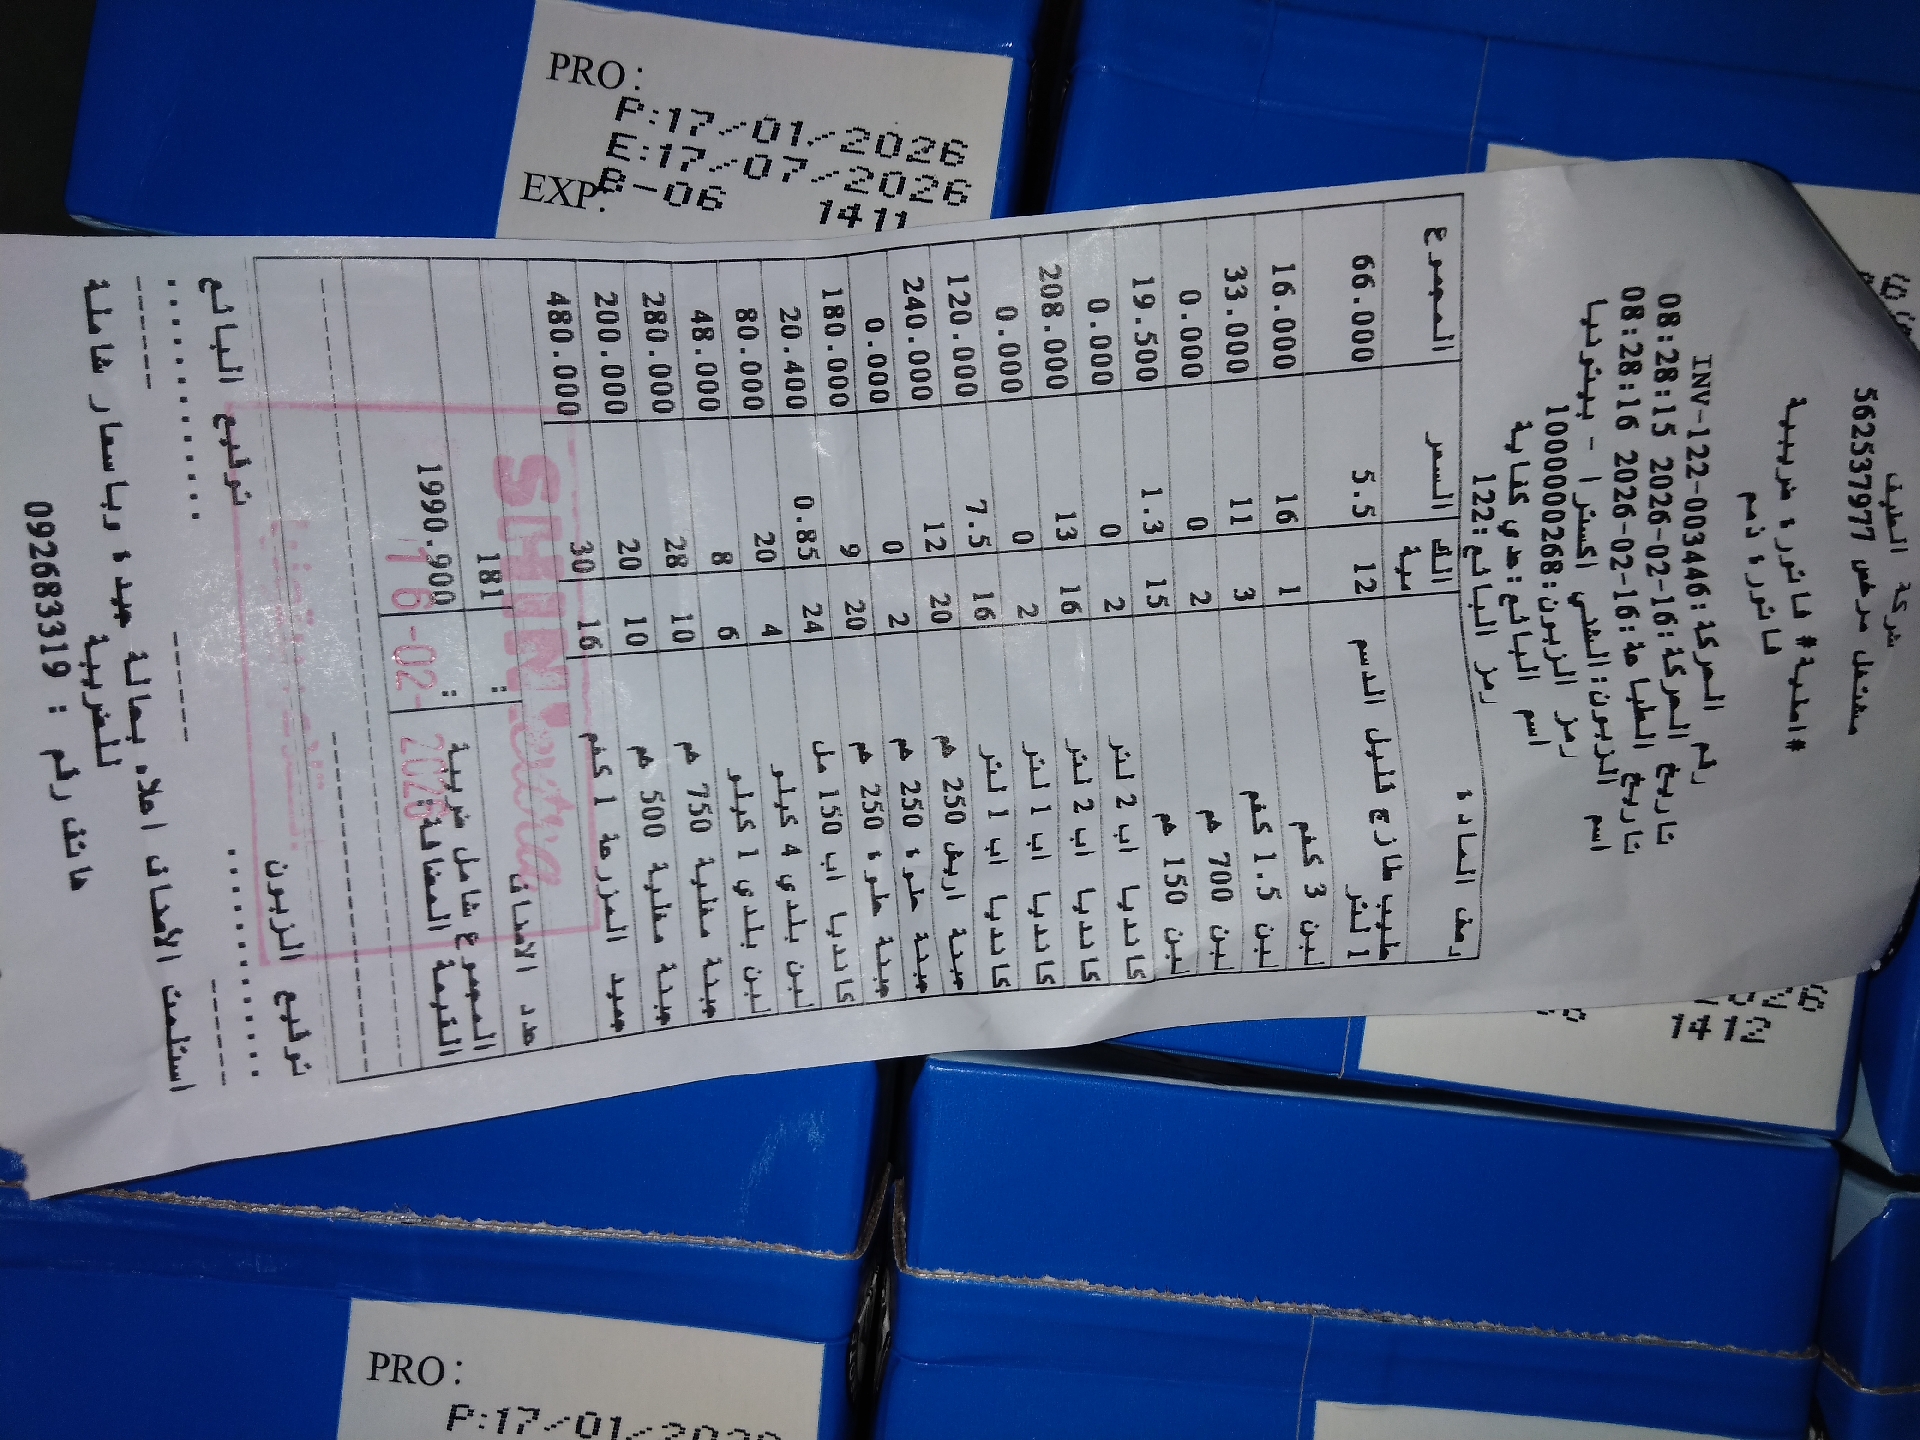 PRO:
P:17/01/2026
E:17/07/2026
EXP:
B-06 1411
شركة الطيف
مشتغل مرخص 562537977
#اصلية# فاتورة ضريبية
فاتورة ذمم
رقم الحركة:INV-122-003446
تاريخ الحركة:16-02-2026 08:28:15
تاريخ الطباعة:16-02-2026 08:28:16
اسم الزبون:الشني اكسترا - بيتونيا
رمز الزبون:1000000268
اسم البائع:عدي كفاية
رمز البائع:122
وصف المادة الكمية السعر المجموع
حليب طازج قليل الدسم 1 لتر 12 5.5 66.000
لبن 3 كغم 1 16 16.000
لبن 1.5 كغم 3 11 33.000
لبن 700 غم 2 0 0.000
لبن 150 غم 15 1.3 19.500
كانديا اب 2 لتر 2 0 0.000
كانديا اب 2 لتر 16 13 208.000
كانديا اب 1 لتر 2 0 0.000
كانديا اب 1 لتر 16 7.5 120.000
جبنة اريش 250 غم 20 12 240.000
جبنة حلوة 250 غم 2 0 0.000
جبنة حلوة 250 غم 20 9 180.000
كانديا اب 150 مل 24 0.85 20.400
لبن بلدي 4 كيلو 4 20 80.000
لبن بلدي 1 كيلو 6 8 48.000
جبنة مغلية 750 غم 10 28 280.000
جبنة مغلية 500 غم 10 20 200.000
جميد المزرعة 1 كغم 16 30 480.000
عدد الاصناف : 181
المجموع شامل ضريبة القيمة المضافة : 1990.900
SHINI extra
16-02-2026
توقيع الزبون توقيع البائع
استلمت الأصناف اعلاه بحالة جيدة وباسعار شاملة للضريبة
هاتف رقم : 092683319
1412
PRO:
P:17/01/2026